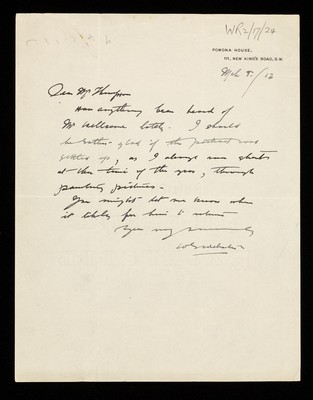 WR2/17/24
POMONA HOUSE,
111, NEW KING'S ROAD, S.W.
Mch 8/12
Dear Mr Thompson
Has anything been heard of
Mr Wellcome lately. I should
be rather glad if the portrait was
settled up, as I always run short
at this time of the year, through
painting pictures.
You might let me know when
it likely for him to return
Yours very sincerely